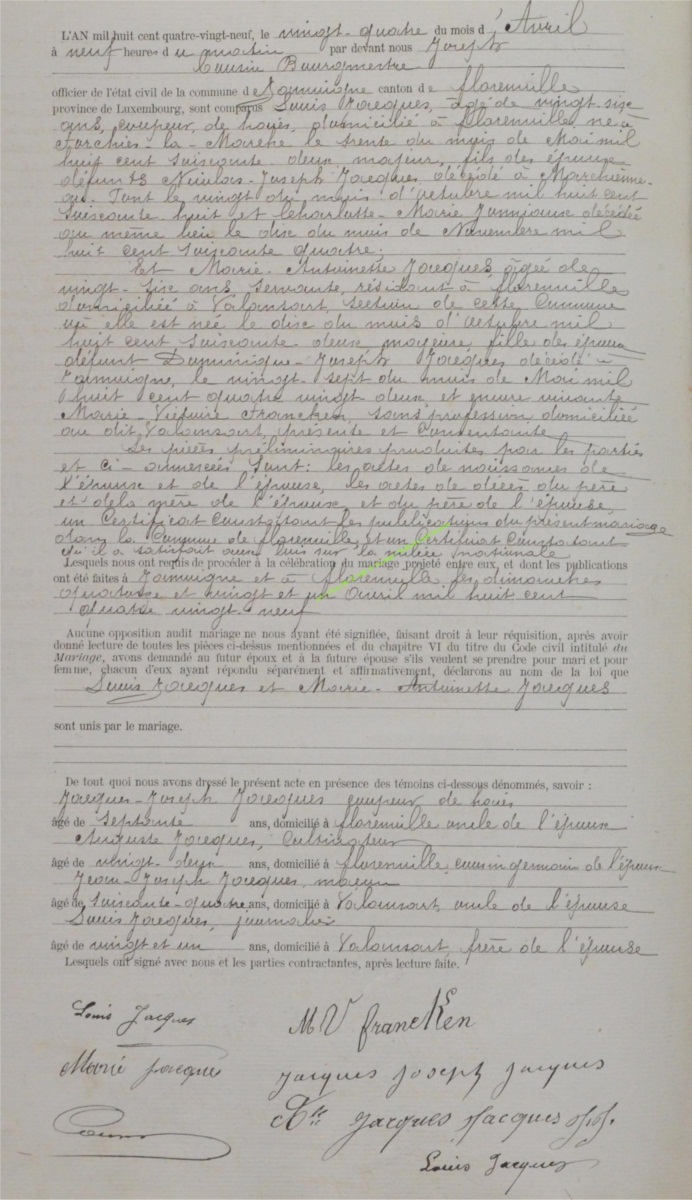 L'AN mil huit cent quatre-vingt-neuf, le vingt-quatre du mois d'Avril
à neuf heures du matin par devant nous Joseph
Cousin Bourgmestre
officier de l'état civil de la commune de Jamoigne canton de Florenville
province de Luxembourg, sont comparus Louis Jacques, âgé de vingt-six
ans, coupeur de haies, domicilié à Florenville né à
Forchies-la-Marche le trente du mois de Mai mil
huit cent soixante-deux, majeur, fils des époux
défunts Nicolas-Joseph Jacques, décédé à Marchienne-
au-Pont le vingt du mois d'octobre mil huit cent
soixante-huit et Charlotte-Marie décédée
au même lieu le dix du mois de Novembre mil
huit cent soixante quatre.
Et Marie-Antoinette Jacques âgée de
vingt-six ans, servante, résidant à Florenville
domiciliée à Valansart, section de cette Commune
où elle est née le dix du mois d'octobre mil
huit cent soixante-deux, majeure, fille des époux
défunt Dominique-Joseph Jacques décédé à
Jamoigne, le vingt-sept du mois de Mai mil
huit cent quatre vingt-deux et encore vivante
Marie-Victoire Francken, sans profession domiciliée
au dit Valansart, présente et consentante
Les pièces préliminaires produites par les parties
et ci-annexées sont: les actes de naissances de
l'époux et de l'épouse, les actes de décès du père
et de la mère de l'époux et du père de l'épouse,
un Certificat constatant les publications du présent mariage
dans la Commune de Florenville et un Certificat Constatant
qu'il a satisfait aux lois sur la milice nationale
Lesquels nous ont requis de procéder à la célébration du mariage projeté entre eux, et dont les publications
ont été faites à Jamoigne et à Florenville les dimanches
quatorze et vingt et un Avril mil huit cent
quatre vingt-neuf
Aucune opposition audit mariage ne nous ayant été signifiée, faisant droit à leur réquisition, après avoir
donné lecture de toutes les pièces ci-dessus mentionnées et du chapitre VI du titre du Code civil intitulé du
Mariage, avons demandé au futur époux et à la future épouse s'ils veulent se prendre pour mari et pour
femme, chacun d'eux ayant répondu séparément et affirmativement, déclarons au nom de la loi que
Louis Jacques et Marie-Antoinette Jacques
sont unis par le mariage.
De tout quoi nous avons dressé le présent acte en présence des témoins ci-dessous dénommés, savoir :
Jacques-Joseph Jacques coupeur de haies
âgé de septante ans, domicilié à Florenville oncle de l'époux
Auguste Jacques, Cultivateur
âgé de vingt-deux ans, domicilié à Florenville, cousin germain de l'époux
Jean-Joseph Jacques, maçon
âgé de soixante-quatre ans, domicilié à Valansart, oncle de l'épouse
Louis Jacques, journalier
âgé de vingt et un ans, domicilié à Valansart, frère de l'épouse
Lesquels ont signé avec nous et les parties contractantes, après lecture faite.
Louis Jacques
M V francKen
Marie Jacques
Jacques Joseph Jacques
Jacques Jacques
Louis Jacques